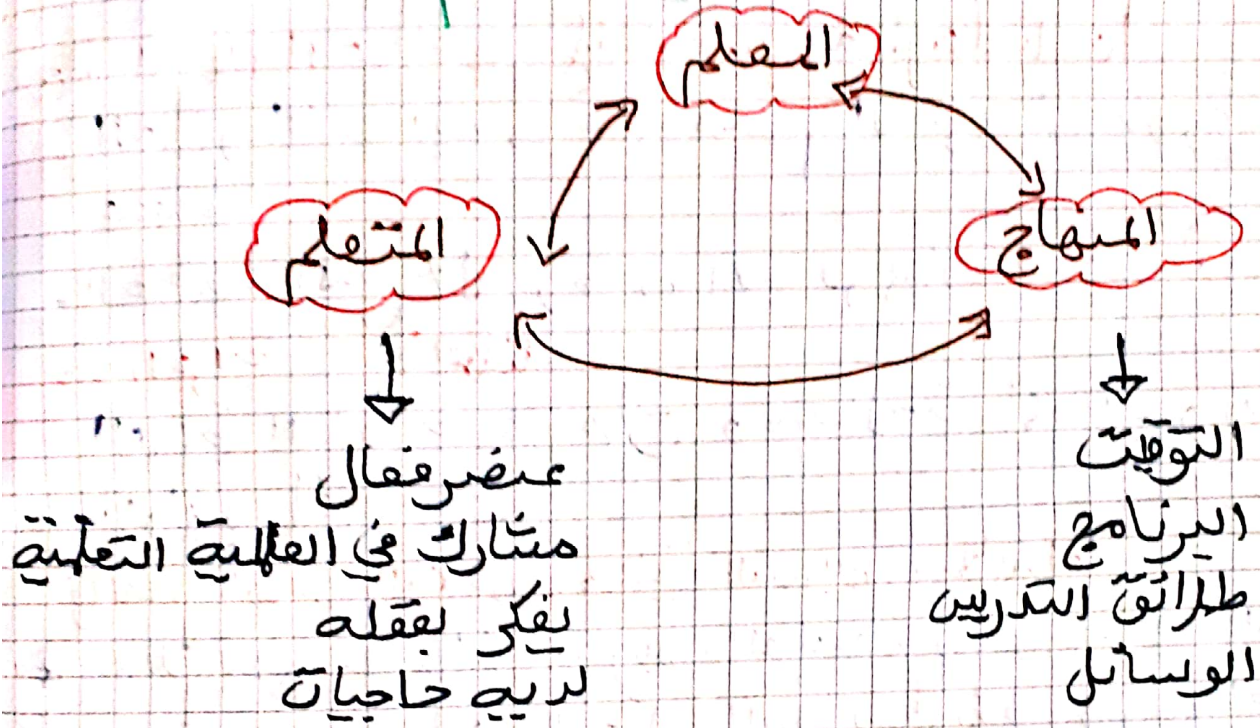 المعلم
المنهاج
المتعلم
التوقيت
البرنامج
طرائق التدريس
الوسائل
عنصر فعال
مشارك في العملية التعلمية
يفكر بعقله
لديه حاجيات